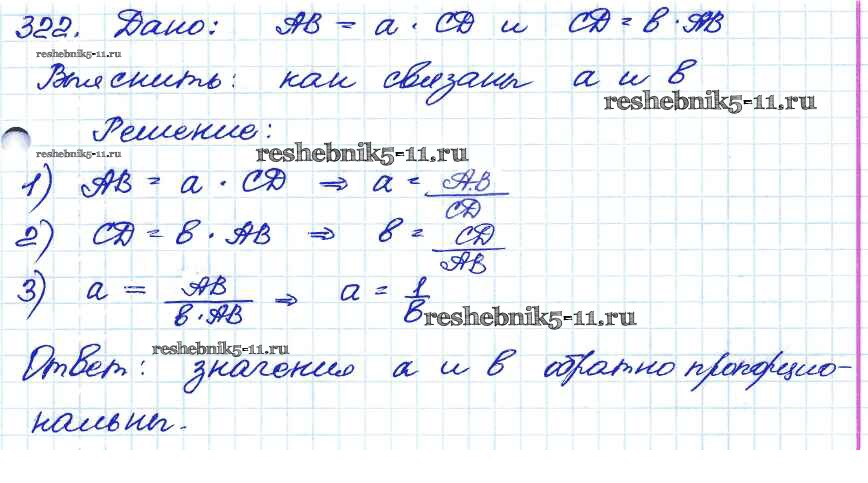 322. Дано: AB = a · CD и CD = в · AB
reshebnik5-11.ru
Выяснить: как связаны a и в
reshebnik5-11.ru
Решение:
reshebnik5-11.ru
reshebnik5-11.ru
1) AB = a · CD ⇒ a = AB/CD
2) CD = в · AB ⇒ в = CD/AB
3) a = AB/в·AB ⇒ a = 1/в
reshebnik5-11.ru
reshebnik5-11.ru
Ответ: значения a и в обратно пропорцио-
нальны.